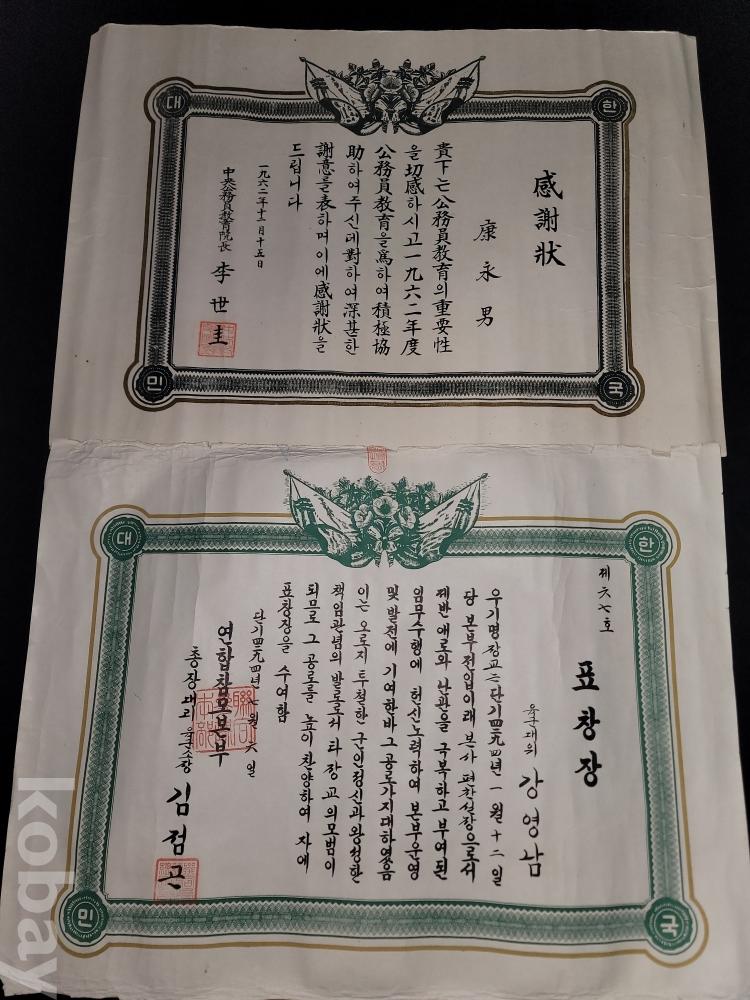 대
한
感謝狀
康永男
貴下는公務員敎育의重要性
을切感하시고一九六二年度
公務員敎育을爲하여積極協
助하여주신데對하여深甚한
謝意를表하며이에感謝狀을
드립니다
一九六二年十二月十五日
中央公務員敎育院長 李世圭
민
국
대
한
제六七호
표창장
육군대위 강영남
우기명장교는단기四二九四년一월十二일
당본부전입이래본사편찬실장으로서
제반애로와난관을극복하고부여된
임무수행에헌신노력하여본부운영
및발전에기여한바그공로가지대하였음
이는오로지투철한군인정신과왕성한
책임관념의발로로서타장교의모범이
되므로그공로를높이찬양하여자에
표창장을수여함
단기四二九四년七월六일
연합참모본부
총장대리 육군소장 김점곤
민
국
kobay